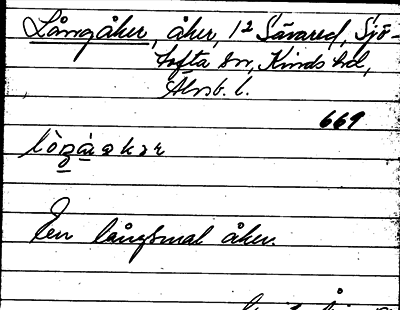 Långåker, åker, 12 Sävared, Sjö-
tofta sn, Kinds hd,
Älvsb. l.
669
En långsmal åker.